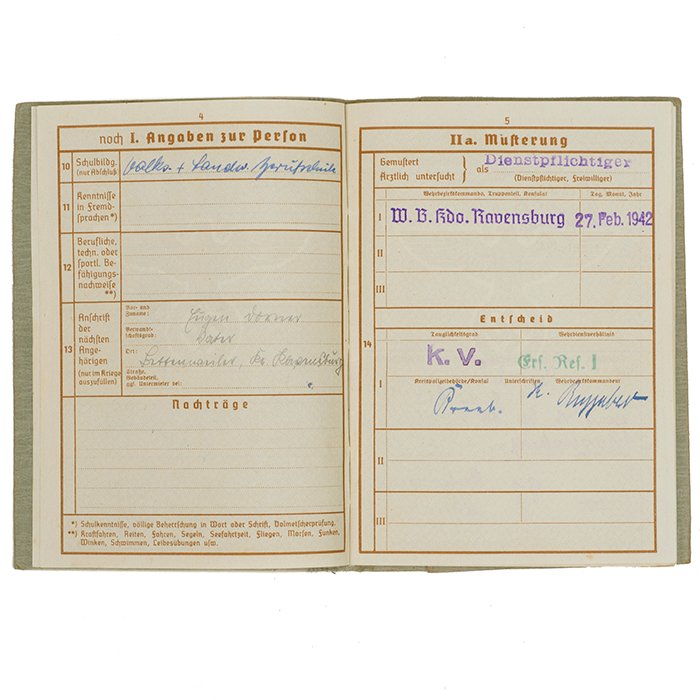 4
noch I. Angaben zur Person
10 Schulbildg. (nur Abschluß) Volks- + Landw. Berufschule
11 Kenntnisse in Fremd-
sprachen*)
12 Berufliche,
techn. oder
sportl. Be-
fähigungs-
nachweise
**)
13 Anschrift
der
nächsten
Ange-
hörigen
(nur im Kriege
auszufüllen)
Vor- und
Zuname: Eugen Dorner
Verwandt-
schaftsgrad: Vater
Ort: Bettenweiler, Kr. Ravensburg
Straße,
Gebäudeteil,
ggf. Untermieter bei:
Nachträge
*) Schulkenntnisse, völlige Beherrschung in Wort oder Schrift, Dolmetscherprüfung.
**) Kraftfahren, Reiten, Fahren, Segeln, Seefahrtzeit, Fliegen, Morsen, Funken,
Winken, Schwimmen, Leibesübungen usw.
5
IIa. Musterung
Gemustert
Ärztlich untersucht
als Dienstpflichtiger
(Dienstpflichtiger, Freiwilliger)
Wehrbezirkskommando, Truppenteil, Konsulat Tag, Monat, Jahr
I W. B. Kdo. Ravensburg 27. Feb. 1942
II
III
Entscheid
Tauglichkeitsgrad Wehrdienstverhältnis
14
K.V. Ers. Res. I
I Kreispolizeibehörde/Konsul Unterschriften Wehrbezirkskommandeur
II
III